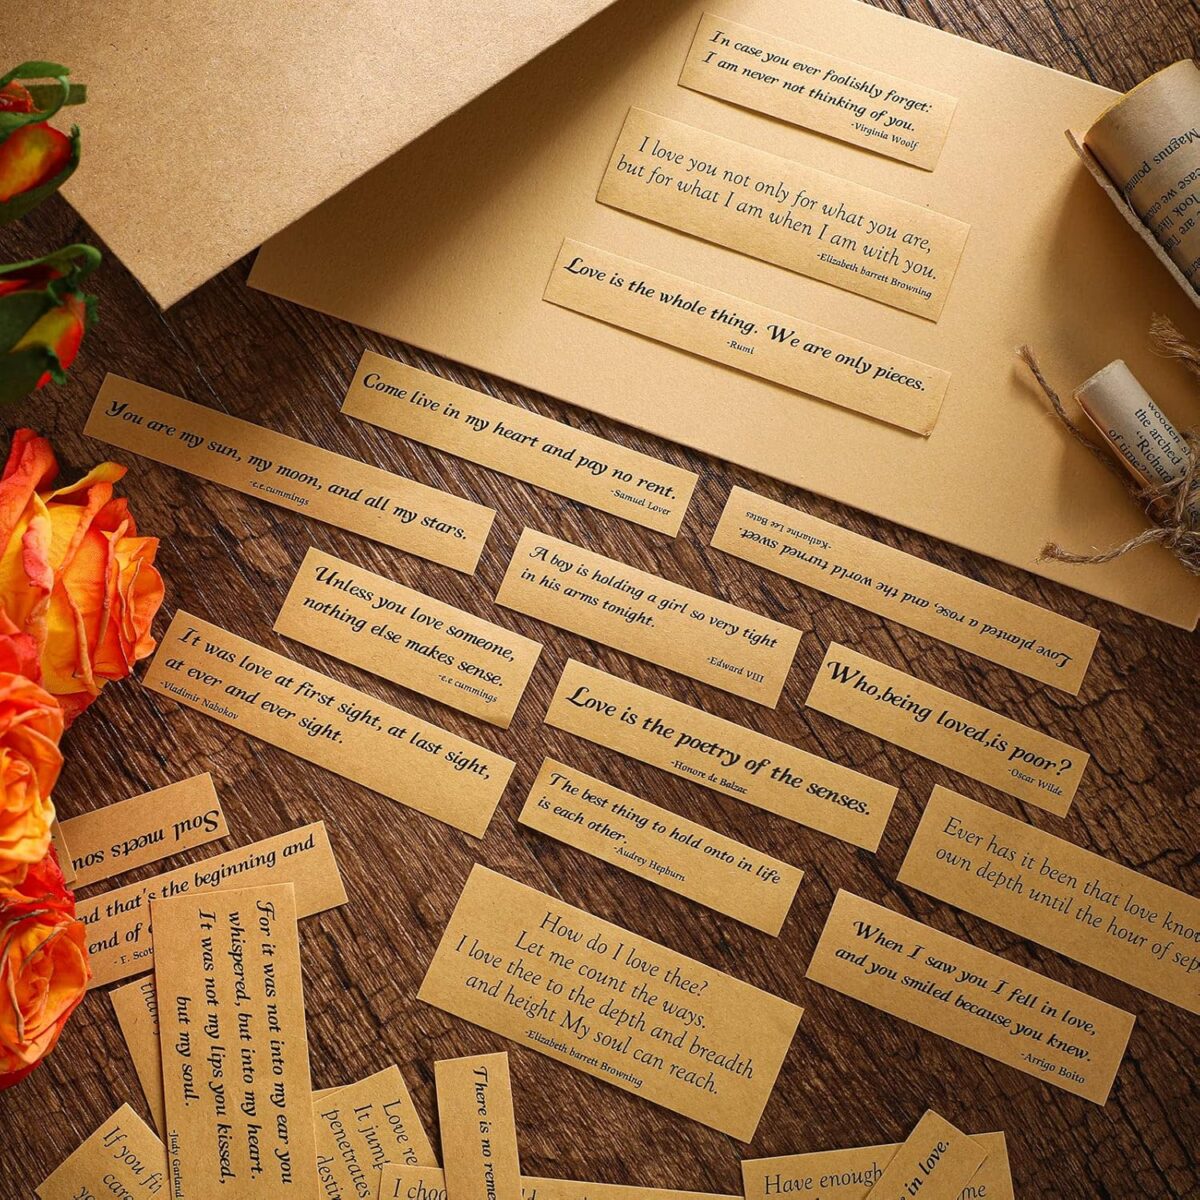 In case you ever foolishly forget:
I am never not thinking of you.
-Virginia Woolf
I love you not only for what you are,
but for what I am when I am with you.
-Elizabeth barrett Browning
Love is the whole thing. We are only pieces.
-Rumi
Magnus
case we
look
are
wooden
the arched
"Richard
of times?
Come live in my heart and pay no rent.
-Samuel Lover
You are my sun, my moon, and all my stars.
-e.e.cummings
Love planted a rose, and the world turned sweet.
-Katharine Lee Bates
A boy is holding a girl so very tight
in his arms tonight.
-Edward VIII
Unless you love someone,
nothing else makes sense.
-e.e cummings
It was love at first sight, at last sight,
at ever and ever sight.
-Vladimir Nabokov
Who,being loved,is poor?
-Oscar Wilde
Love is the poetry of the senses.
-Honore de Balzac
The best thing to hold onto in life
is each other.
-Audrey Hepburn
Ever has it been that love
own depth until the hour of
How do I love thee?
Let me count the ways.
I love thee to the depth and breadth
and height My soul can reach.
-Elizabeth barrett Browning
When I saw you I fell in love,
and you smiled because you knew.
-Arrigo Boito
Soul meets
that's the beginning and
end of
- F.
For it was not into my ear you
whispered, but into my heart.
It was not my lips you kissed,
but my soul.
-Judy Garland
If you
Love
It
penetrates
There is no
I
Have enough
in love.
me